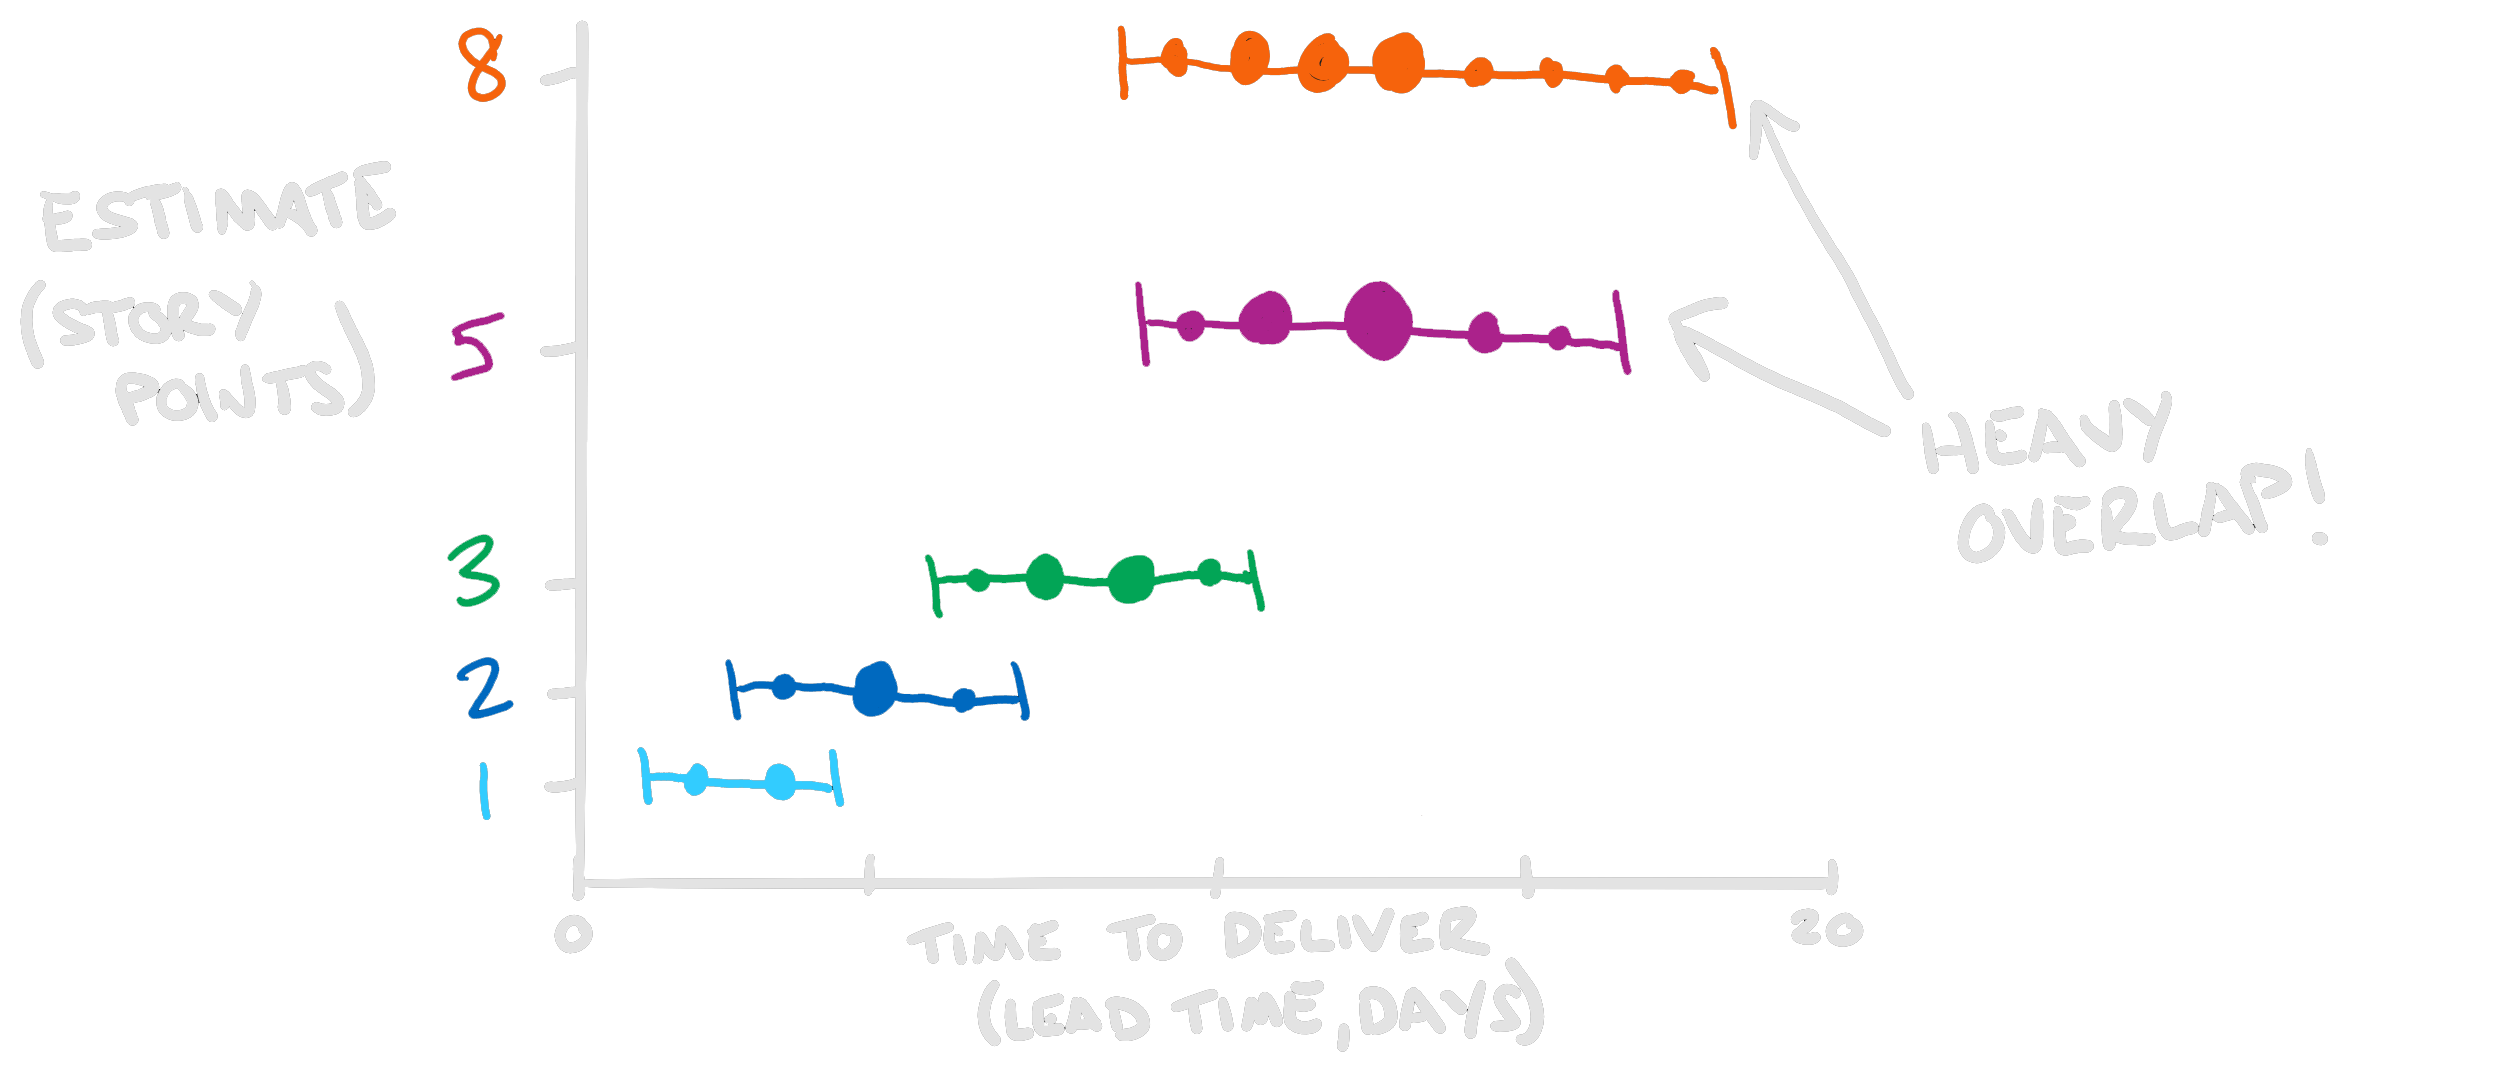 8
ESTIMATE
(STORY
POINTS)
5
HEAVY
OVERLAP!
3
2
1
0
20
TIME TO DELIVER
(LEAD TIME, DAYS)